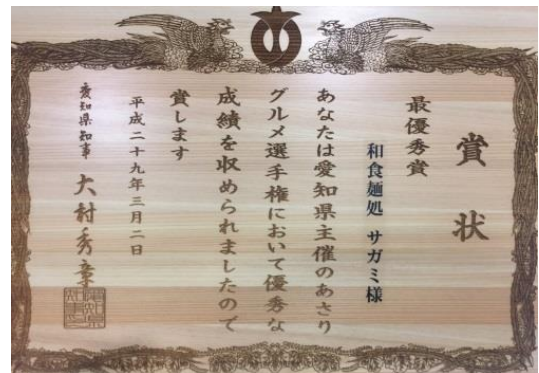 賞状
最優秀賞
和食麺処 サガミ様
あなたは愛知県主催のあさり
グルメ選手権において優秀な
成績を収められましたので
賞します
平成二十九年三月二日
愛知県知事 大村秀章